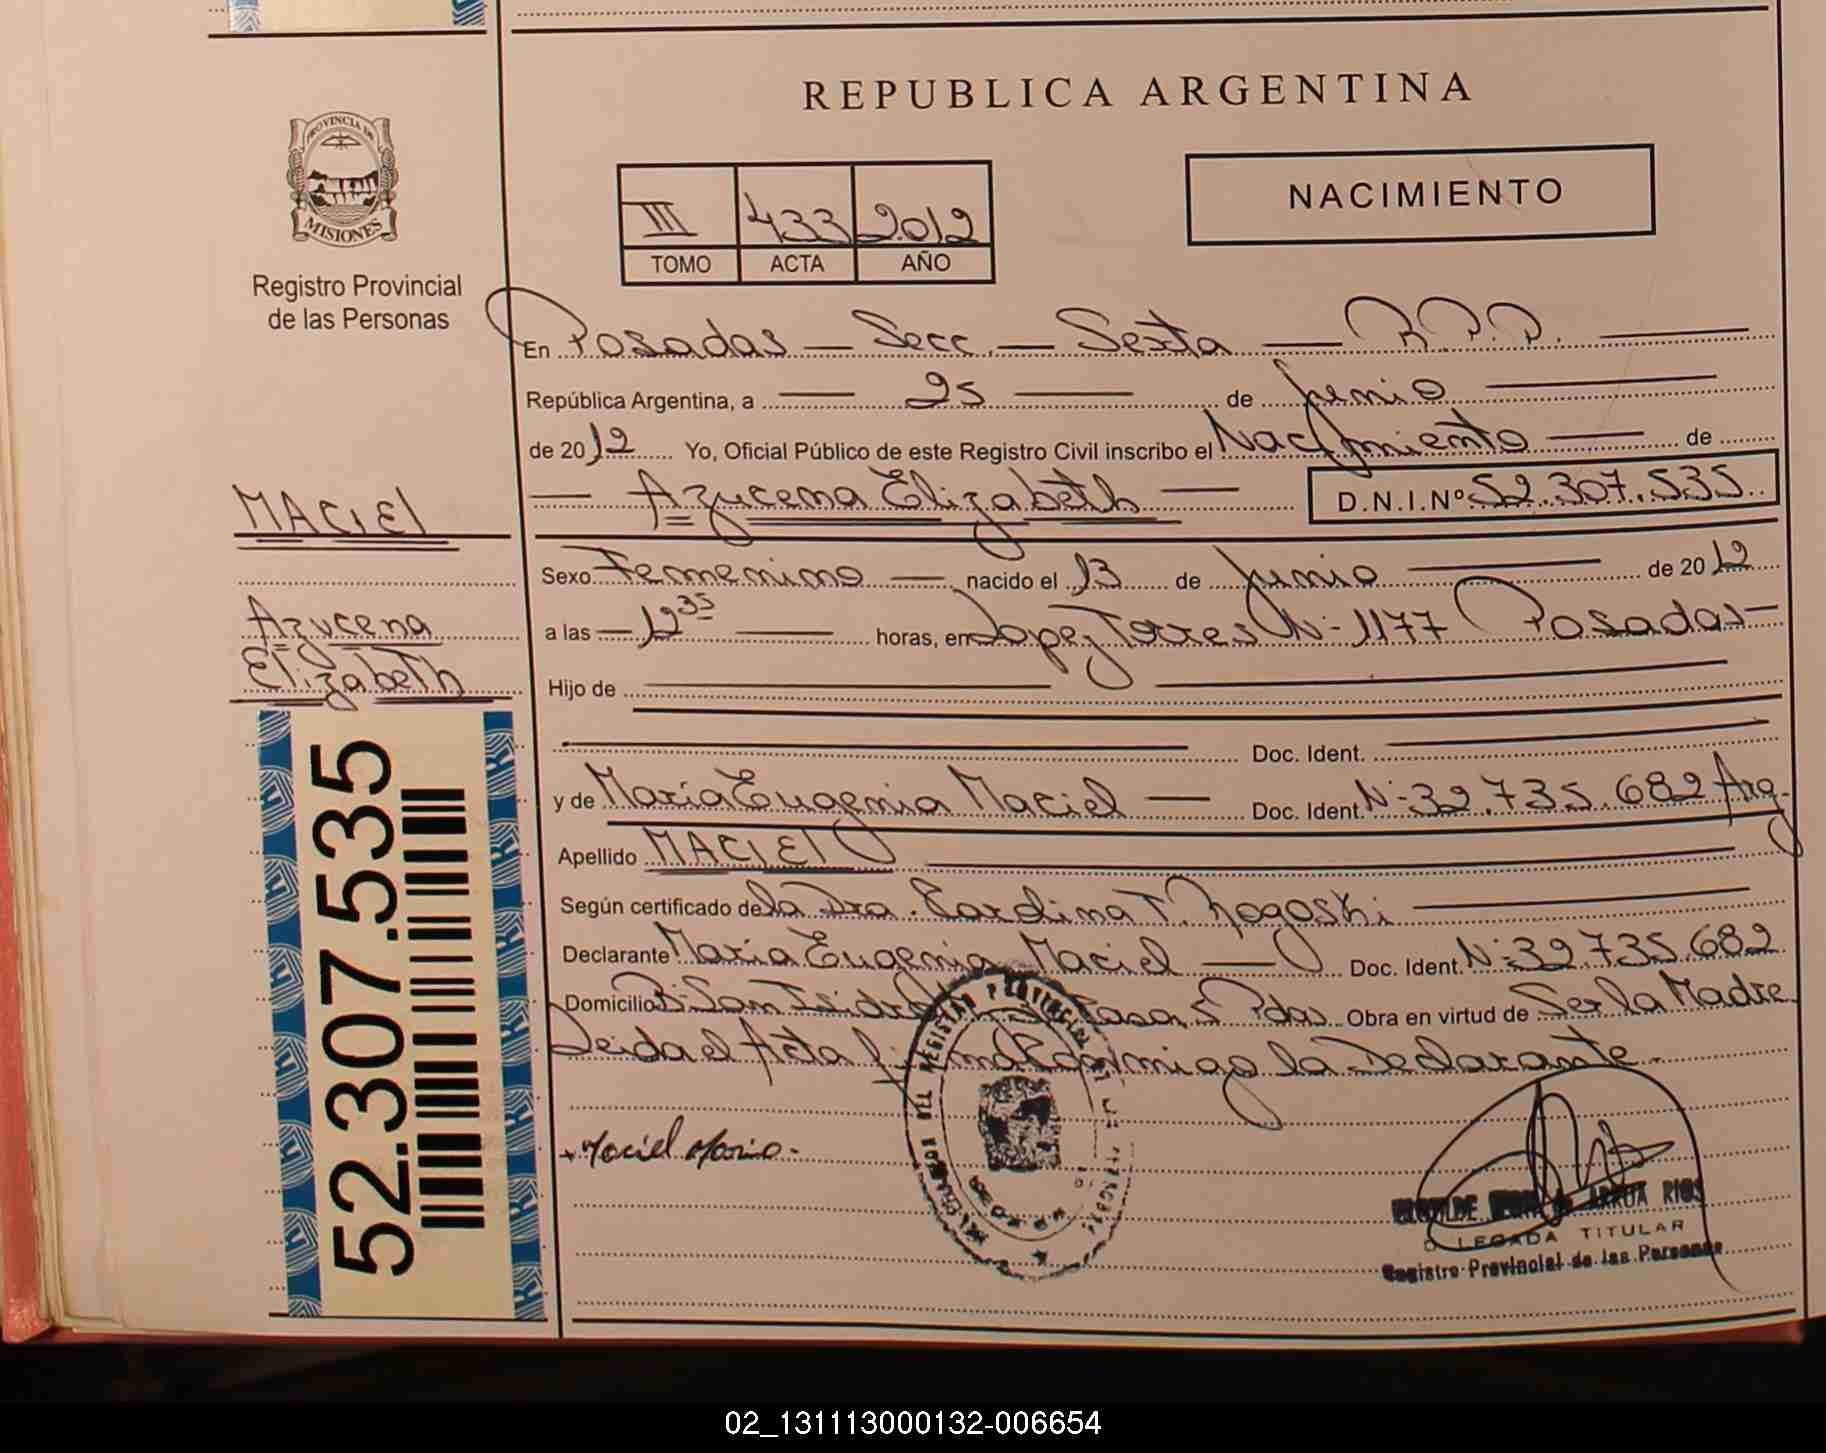 REPUBLICA ARGENTINA
PROVINCIA DE
MISIONES
Registro Provincial
de las Personas
III 433 2012
TOMO ACTA AÑO
NACIMIENTO
En Posadas — Secc. — Sexta — R.P.P.
República Argentina, a — 25 — de Junio
de 2012 Yo, Oficial Público de este Registro Civil inscribo el Nacimiento — de
— Azucena Elizabeth — D.N.I.Nº 52.307.535
MACIEL
Azucena
Elizabeth
Sexo Femenino — nacido el 13 de Junio — de 2012
a las — 12 35 — horas, en Lopez Torres N- 1177 Posadas —
Hijo de
Doc. Ident.
y de María Eugenia Maciel — Doc. Ident. Nº 32.735.682 Arg.
Apellido MACIEL
Según certificado de la Dra. T.
Declarante María Eugenia Maciel — Doc. Ident. Nº 32.735.682
Domicilio Bº San Isidro Casa 5 Pdas. Obra en virtud de Ser la Madre
Leida el Acta firma conmigo la Declarante.
Maciel Maria.
ARRUA RIOS
DELEGADA TITULAR
Registro Provincial de las Personas
52.307.535
02_131113000132-006654